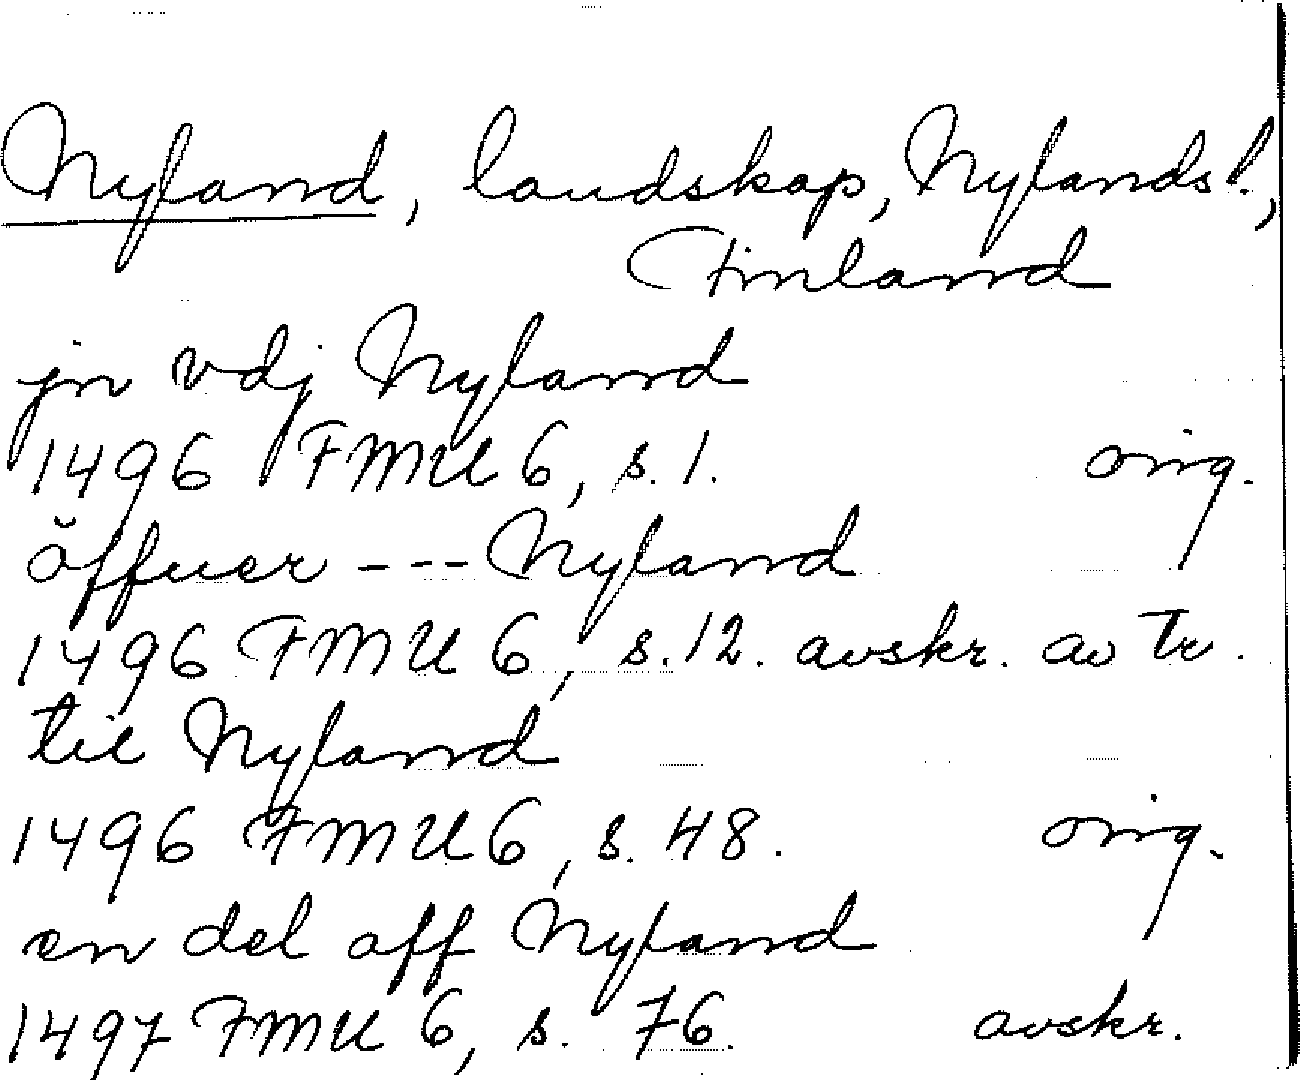 Nyland, landskap, Nylands l.,
Finland
jn vdj Nyland
1496 FMU 6, s. 1. orig.
öffuer --- Nyland
1496 FMU 6, s. 12. avskr. av tr.
til Nyland
1496 FMU 6, s. 48. orig.
en del aff Nyland
1497 FMU 6, s. 76. avskr.